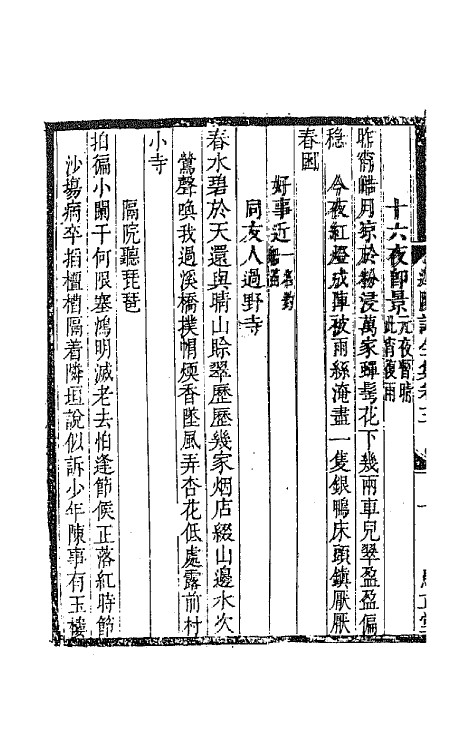 十六夜即景 元夜暫晴此宵復雨
昨宵皓月涼於粉浸萬家嚲髩花下幾兩車兒翠盈盈偏
穩 今夜紅燈成陣被雨絲淹盡一隻銀鴨床頭鎮厭厭
春困
好事近 一名釣船笛
同友人過野寺
春水碧於天還與晴山賒翠歷歷幾家烟店綴山邊水次
鶯聲喚我過溪橋撲帽煙香墜風弄杏花低處露前村
小寺
隔院聽琵琶
拍徧小闌干何限塞鴻明滅老去怕逢節候正落紅時節
沙場病卒搯檀槽隔着隣垣說似訴少年陳事有玉樓